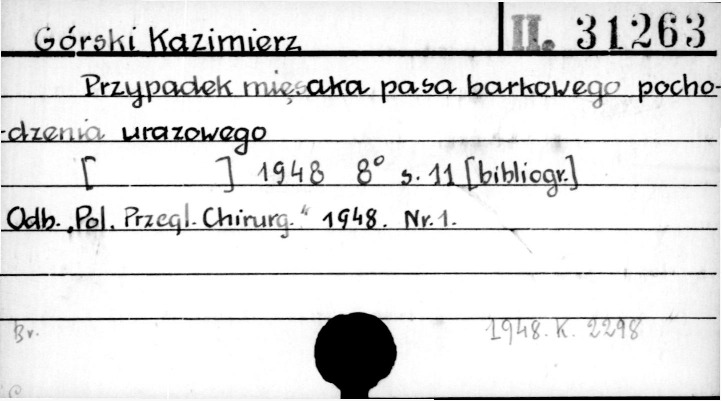 Górski Kazimierz II. 31263
Przypadek mięsaka pasa barkowego pocho-
-dzenia urazowego
[ ] 1948 8° s. 11 [bibliogr.]
Odb. „Pol. Przegl. Chirurg.“ 1948. Nr. 1.
Br. 1948. K. 2298